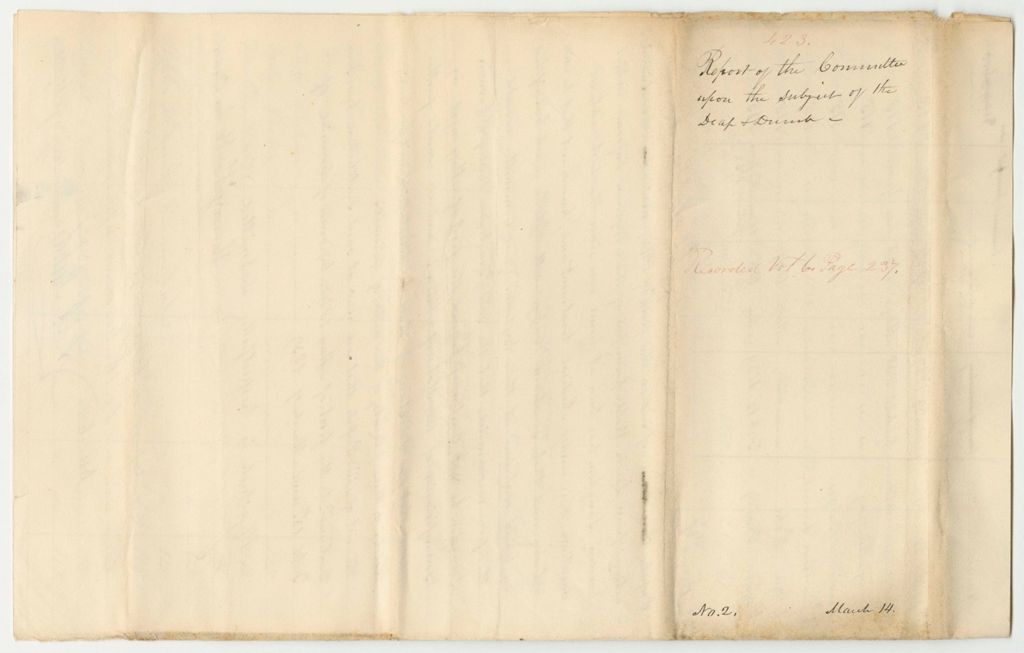 423.
Report of the Committee
upon the subject of the
Deaf & Dumb –
Recorded Vol 6. Page 237.
No. 2. March 14.